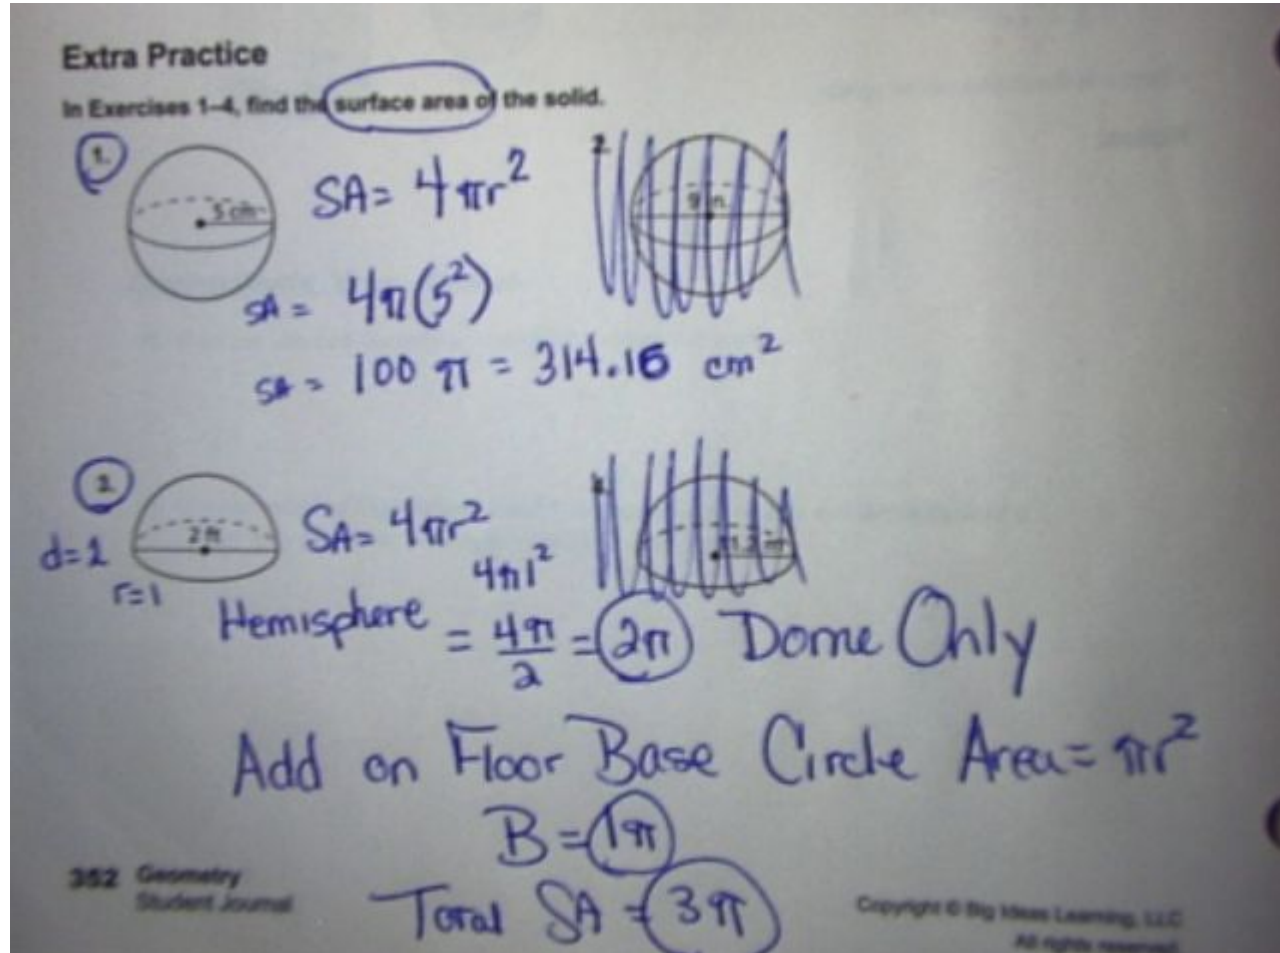 Extra Practice
In Exercises 1–4, find the surface area of the solid.
1.
5 cm
SA = 4πr²
SA = 4π(5²)
SA = 100 π = 314.16 cm²
2.
9 in.
3.
2 ft
d=2
r=1
SA = 4πr²
4π1²
Hemisphere = 4π/2 = 2π Dome Only
Add on Floor Base Circle Area = πr²
B = 1π
Total SA = 3π
352 Geometry
Student Journal
Copyright © Big Ideas Learning, LLC
All rights reserved.